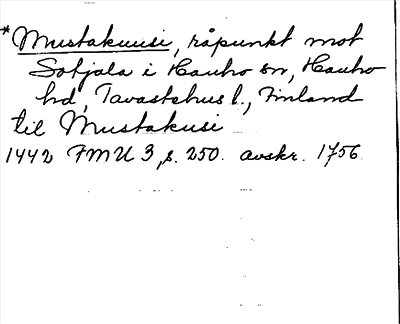 *Mustakuusi, råpunkt mot
Sotjala i Hauho sn, Hauho
hd, Tavastehus l., Finland
til Mustakusi
1442 FMU 3, s. 250. avskr. 1756.